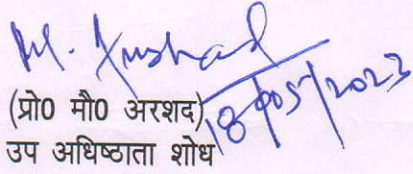 M. Arshad
18/05/2023
(प्रो0 मौ0 अरशद)
उप अधिष्ठाता शोध